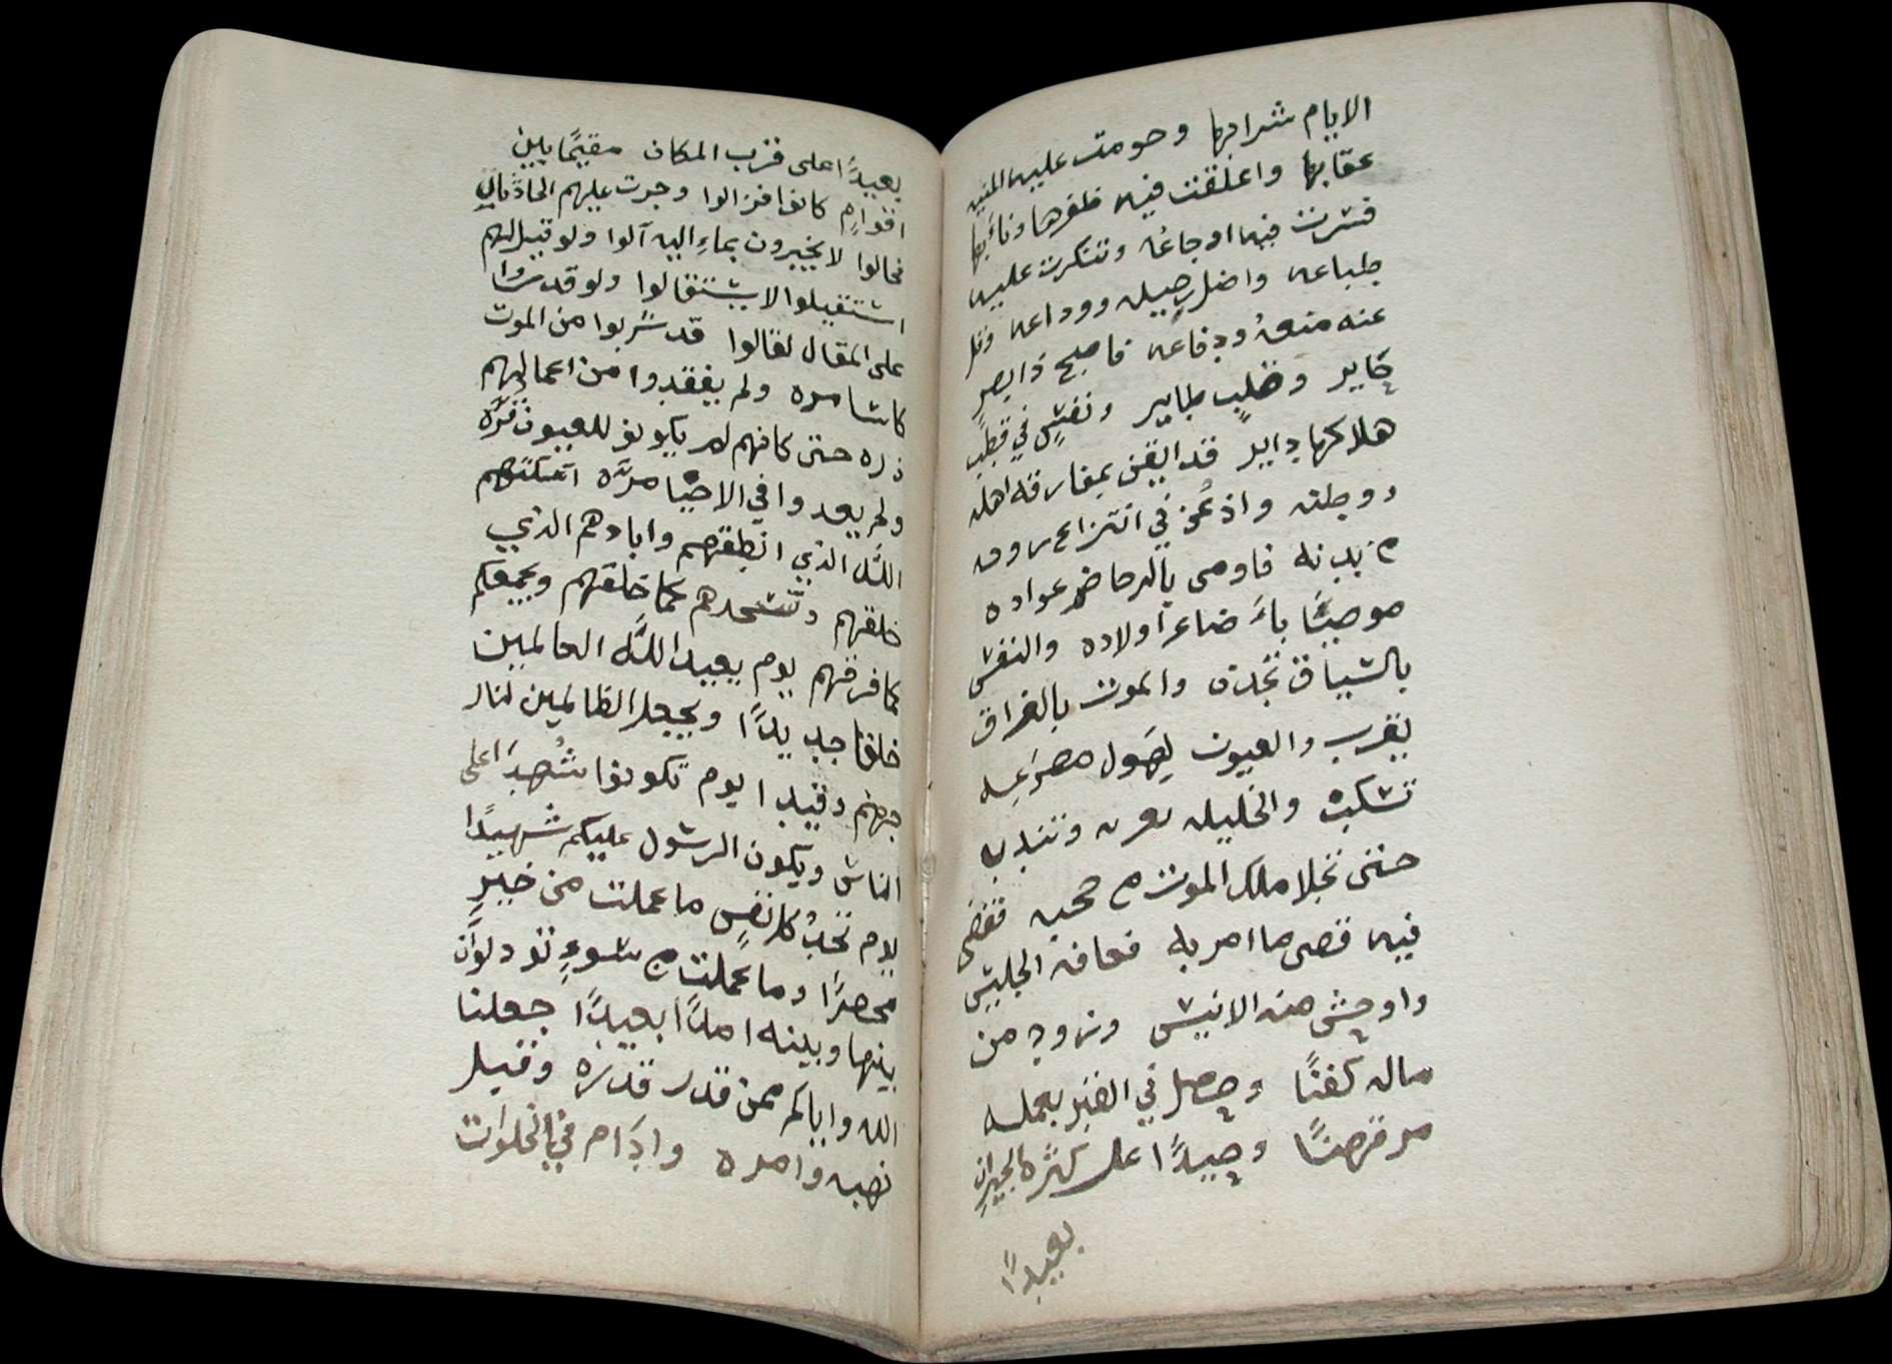 الايام شرابها وحومت عليه المنيه
عقابها واعلقت فيه ظفرها ونابها
فسرت فيه اوجاعه وتنكرت عليه
طباعه واضل رحيله ووداعه وقل
عنه منعهُ ودفاعه فاصبح ذا بصرٍ
حايرٍ وقلبٍ طايرٍ ونفسٍ في قطب
هلاكها دايرٍ قد ايقن بمفارقة اهله
ووطنه واذعن في انتزاع روحه
من بدنه فاومى بالدحاضر عواده
موصيًا باَضاغر اولاده والنفس
بالسياق تجذب والموت بالفراق
يقرب والعيون لِهَول مصرَعِه
تسكب والخليله وتندب
حتى تجلا ملك الموت من حجبه فقضى
فيه قضى ما امر به فعافه الجليس
واوحش منه الانيس وزود من
ماله كفنًا وحصل في القبر بعمله
مرتهنًا وحيدًا على كثرة الجيرانِ
بعيدًا
بعيدًا على قرب المكان مقيمًا بين
اقوامٍ كانوا فزالوا وجرت عليهم الحادثات
فحالوا لا يخبرون بماءِ اليه آلوا ولو قيل لهم
استقيلوا لاستقالوا ولو قدروا
على المقال لقالوا قد شربوا من الموت
كاسا مره ولم يفقدوا من اعمالهم
ذره حتى كانهم لم يكونو للعيون قرّه
ولم يعدوا في الاحيا مرّه اسكتهم
اللّه الذي انطقهم وابادهم الذي
خلقهم وسيجدهم كما خلقهم ويجمعهم
كما فرقهم يوم يعيد اللّه العالمين
خلقا جديدًا ويجعل الظالمين لنار
جهنم وقيدا يوم تكونوا شُهدَا على
الناس ويكون الرسول عليكم شهيدًا
يوم تجدُ كل نفسٍ ما عملت من خيرٍ
محضرًا وما عملت من سوءٍ تود لوَان
بينها وبينه امدًا بعيدًا جعلنا
الله واياكم ممن قدر قدره وقبل
نهيه وامره وادَام في الخلوات